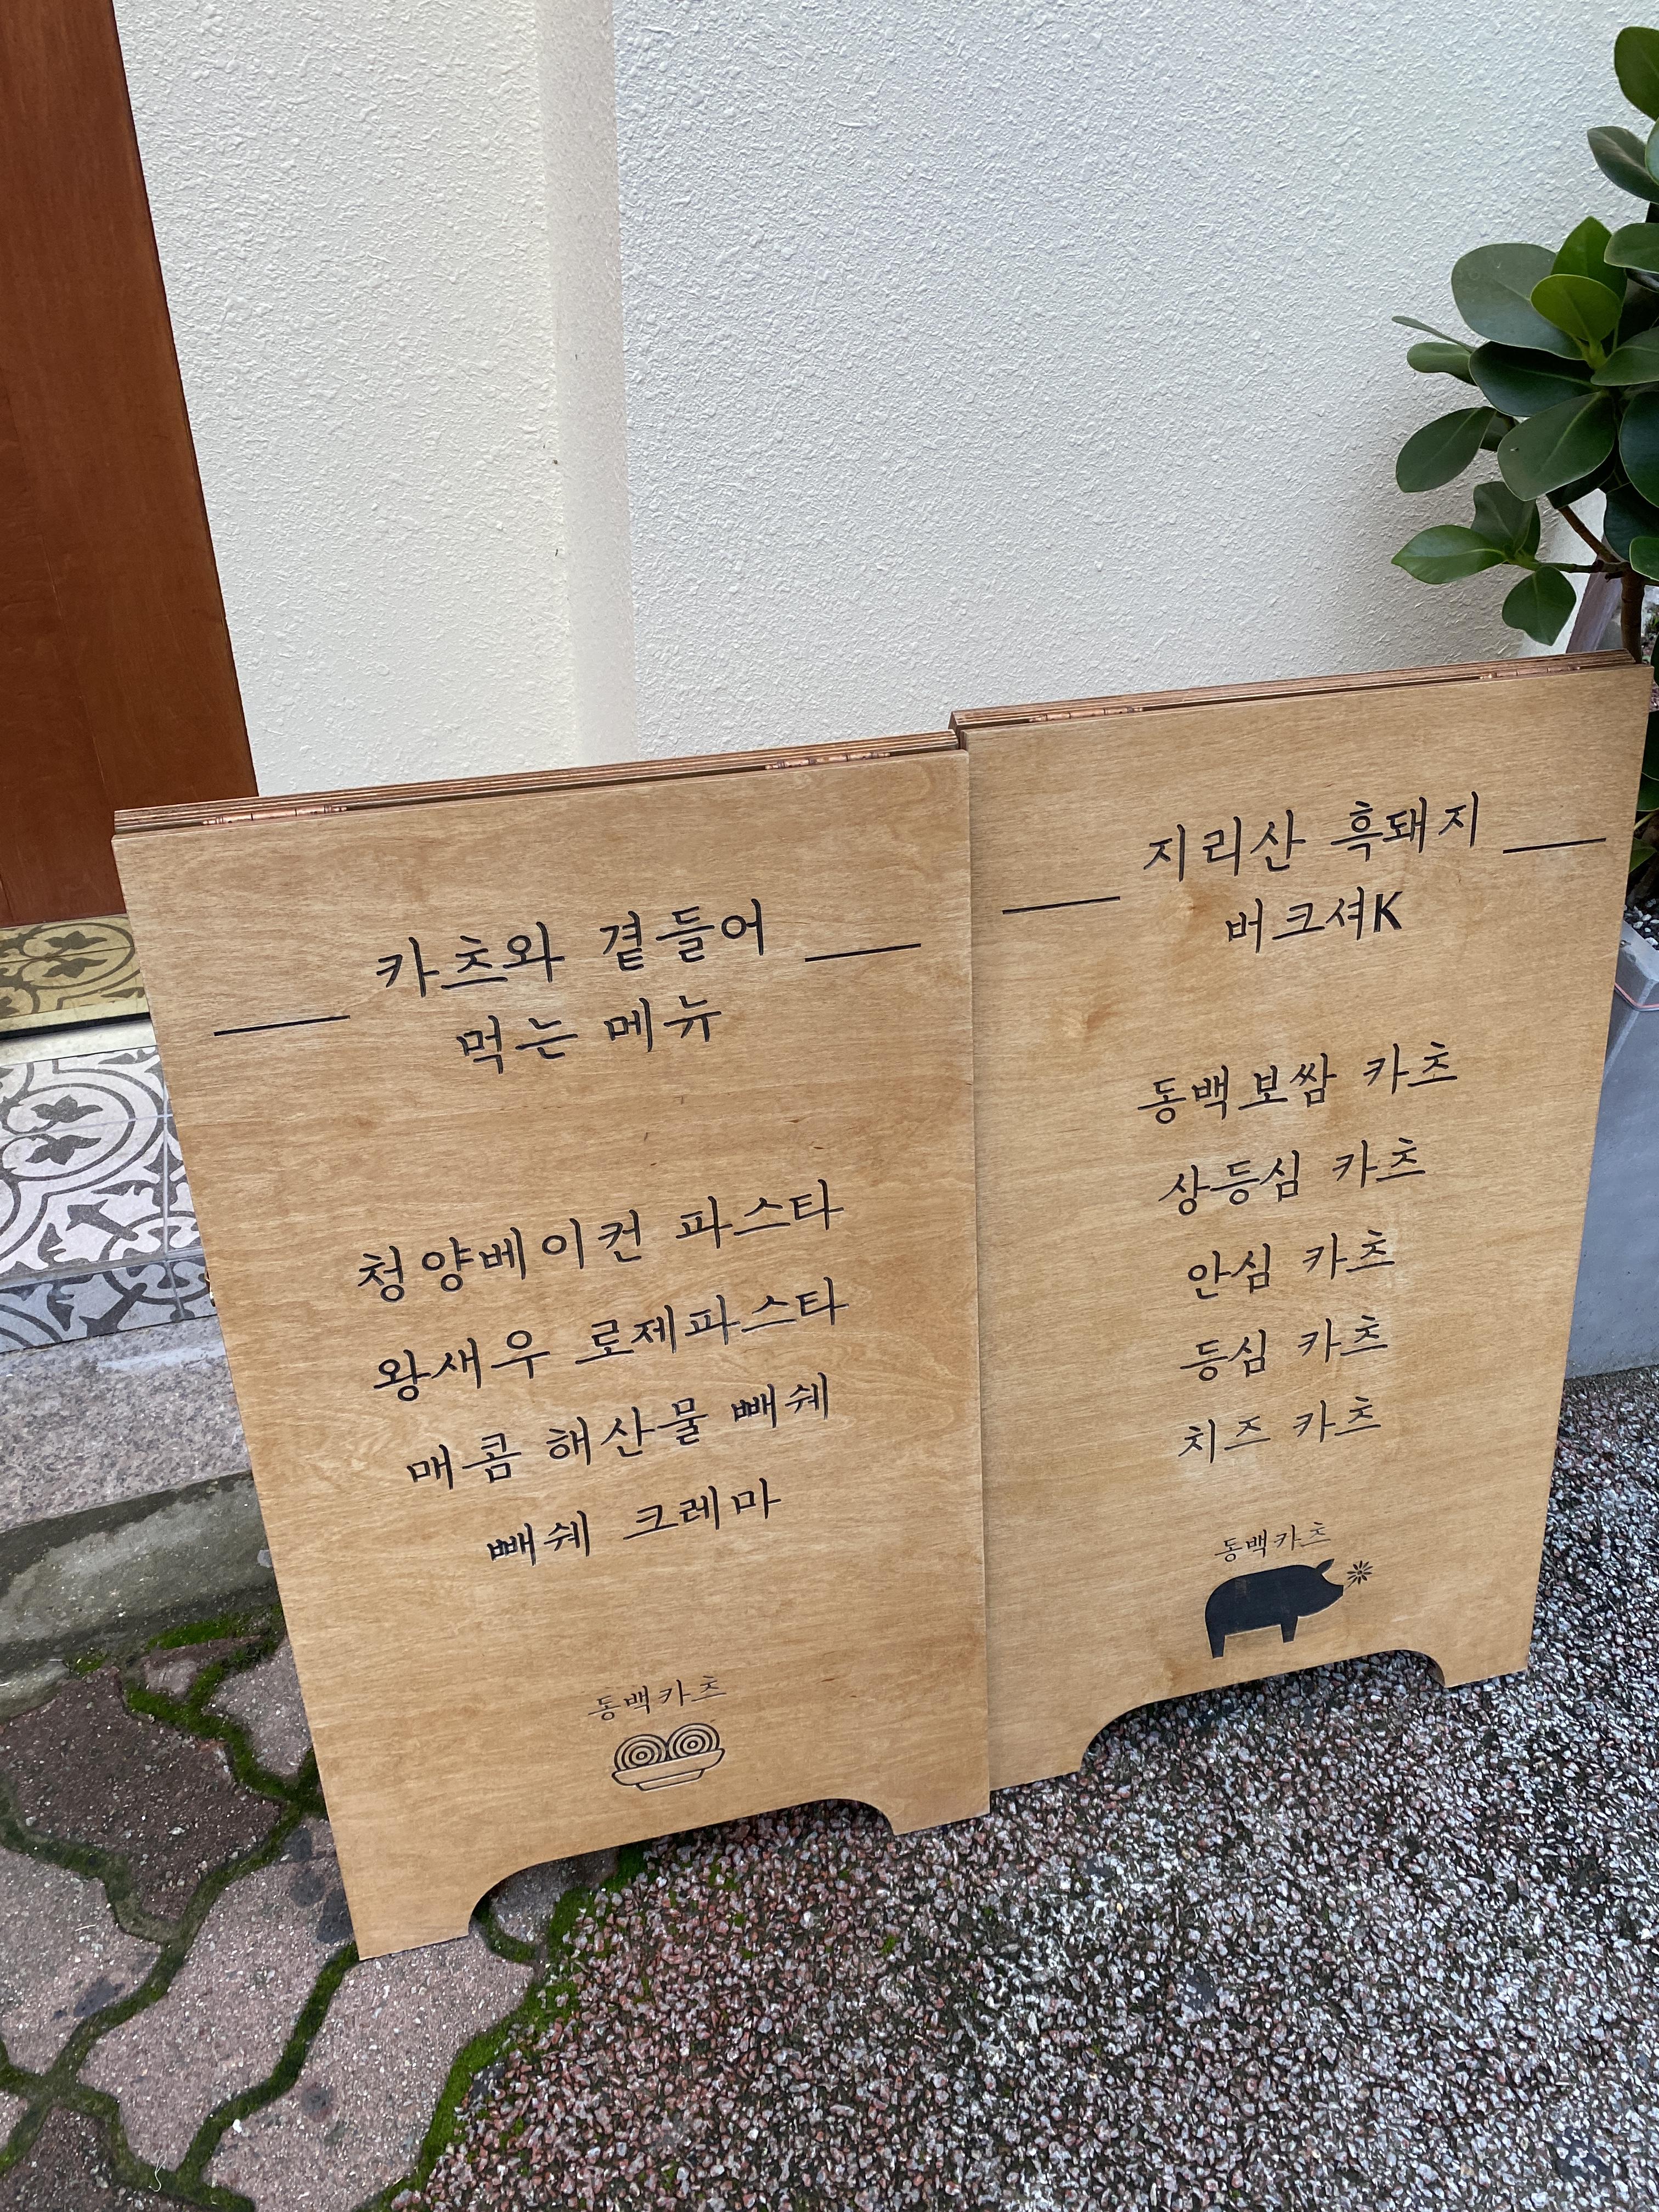 카츠와 곁들어
먹는 메뉴
청양베이컨 파스타
왕새우 로제파스타
매콤 해산물 빼쉐
빼쉐 크레마
동백카츠
지리산 흑돼지
버크셔K
동백보쌈 카츠
상등심 카츠
안심 카츠
등심 카츠
치즈 카츠
동백카츠